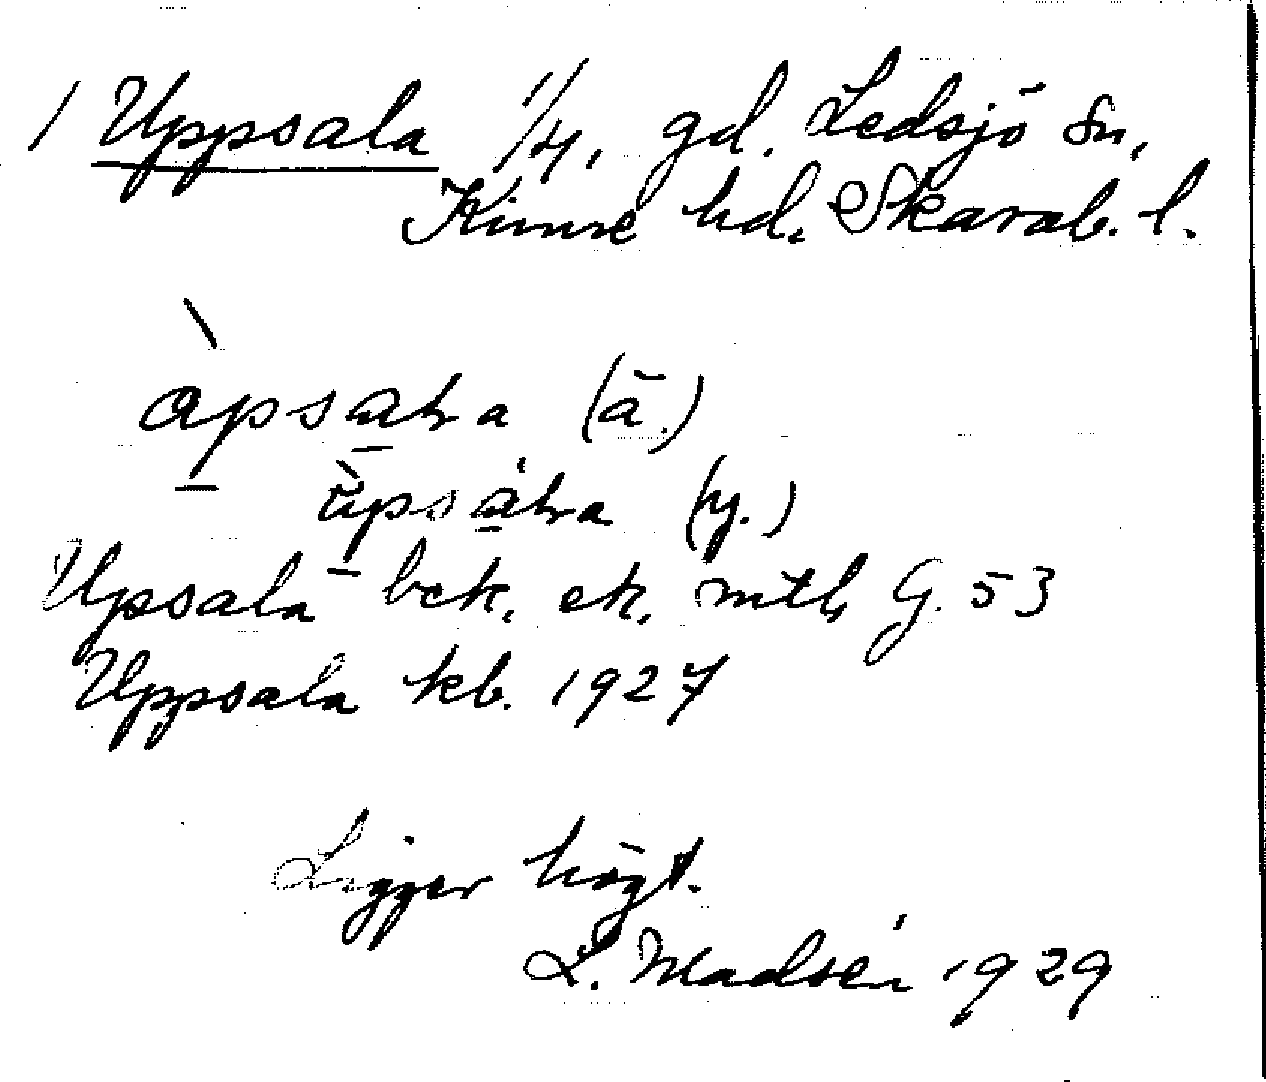 1 Uppsala 1/4, gd. Ledsjö sn,
Kinne hd. Skarab. l.
àpsaɫa (ä.)
ùpsáɫa (y.)
Upsala bck. ek. G. 53
Uppsala kb. 1927
Ligger högt.
L. Madsén 1929